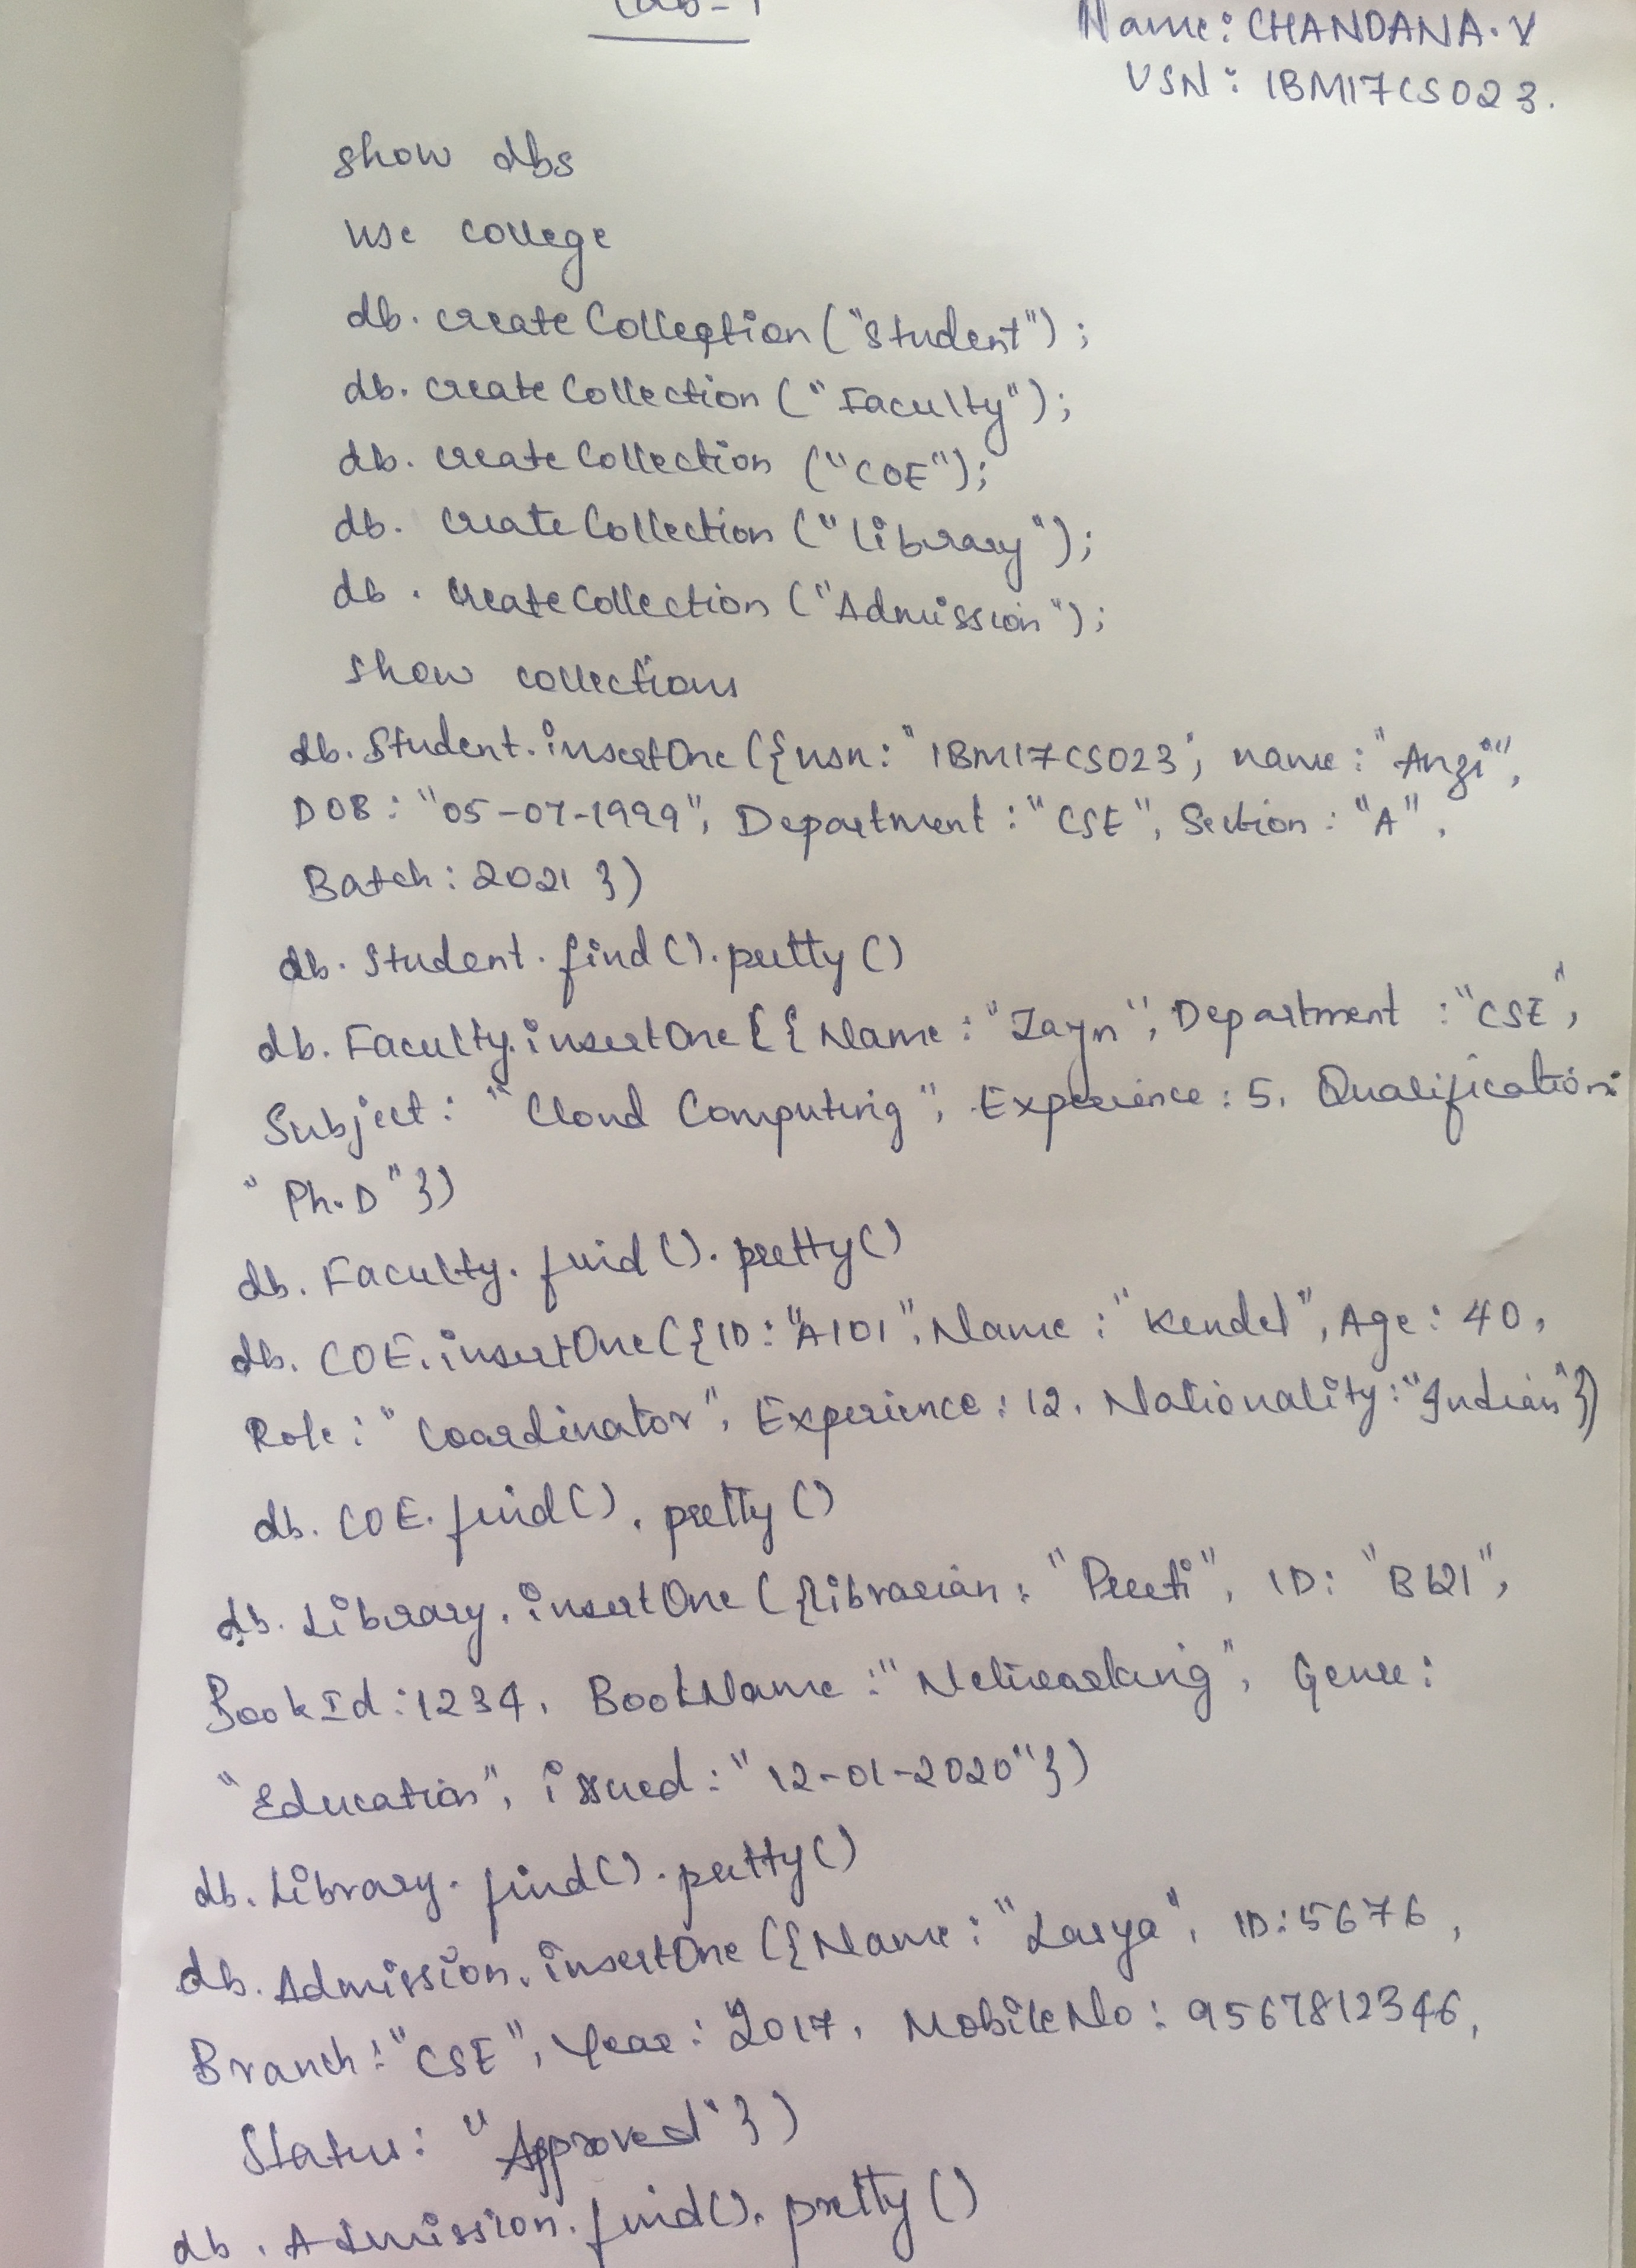 Lab-1
Name: CHANDANA.V
USN: 1BM17CS023.
show dbs
use college
db.createCollection("Student");
db.createCollection("Faculty");
db.createCollection("COE");
db.createCollection("Library");
db.createCollection("Admission");
show collections
db.Student.insertOne({usn:"1BM17CS023", name:"Angi",
DOB:"05-07-1999", Department:"CSE", Section:"A",
Batch:2021})
db.Student.find().pretty()
db.Faculty.insertOne({Name:"Zayn", Department:"CSE",
Subject:"Cloud Computing", Experience:5, Qualification:
"Ph.D"})
db.Faculty.find().pretty()
db.COE.insertOne({ID:"A101", Name:"Kendel", Age:40,
Role:"Coordinator", Experience:12, Nationality:"Indian"})
db.COE.find().pretty()
db.Library.insertOne({librarian:"Preeti", ID:"B121",
BookId:1234, BookName:"Networking", Genre:
"Education", issued:"12-01-2020"})
db.Library.find().pretty()
db.Admission.insertOne({Name:"Lasya", ID:5676,
Branch:"CSE", Year:2017, MobileNo:9567812346,
Status:"Approved"})
db.Admission.find().pretty()